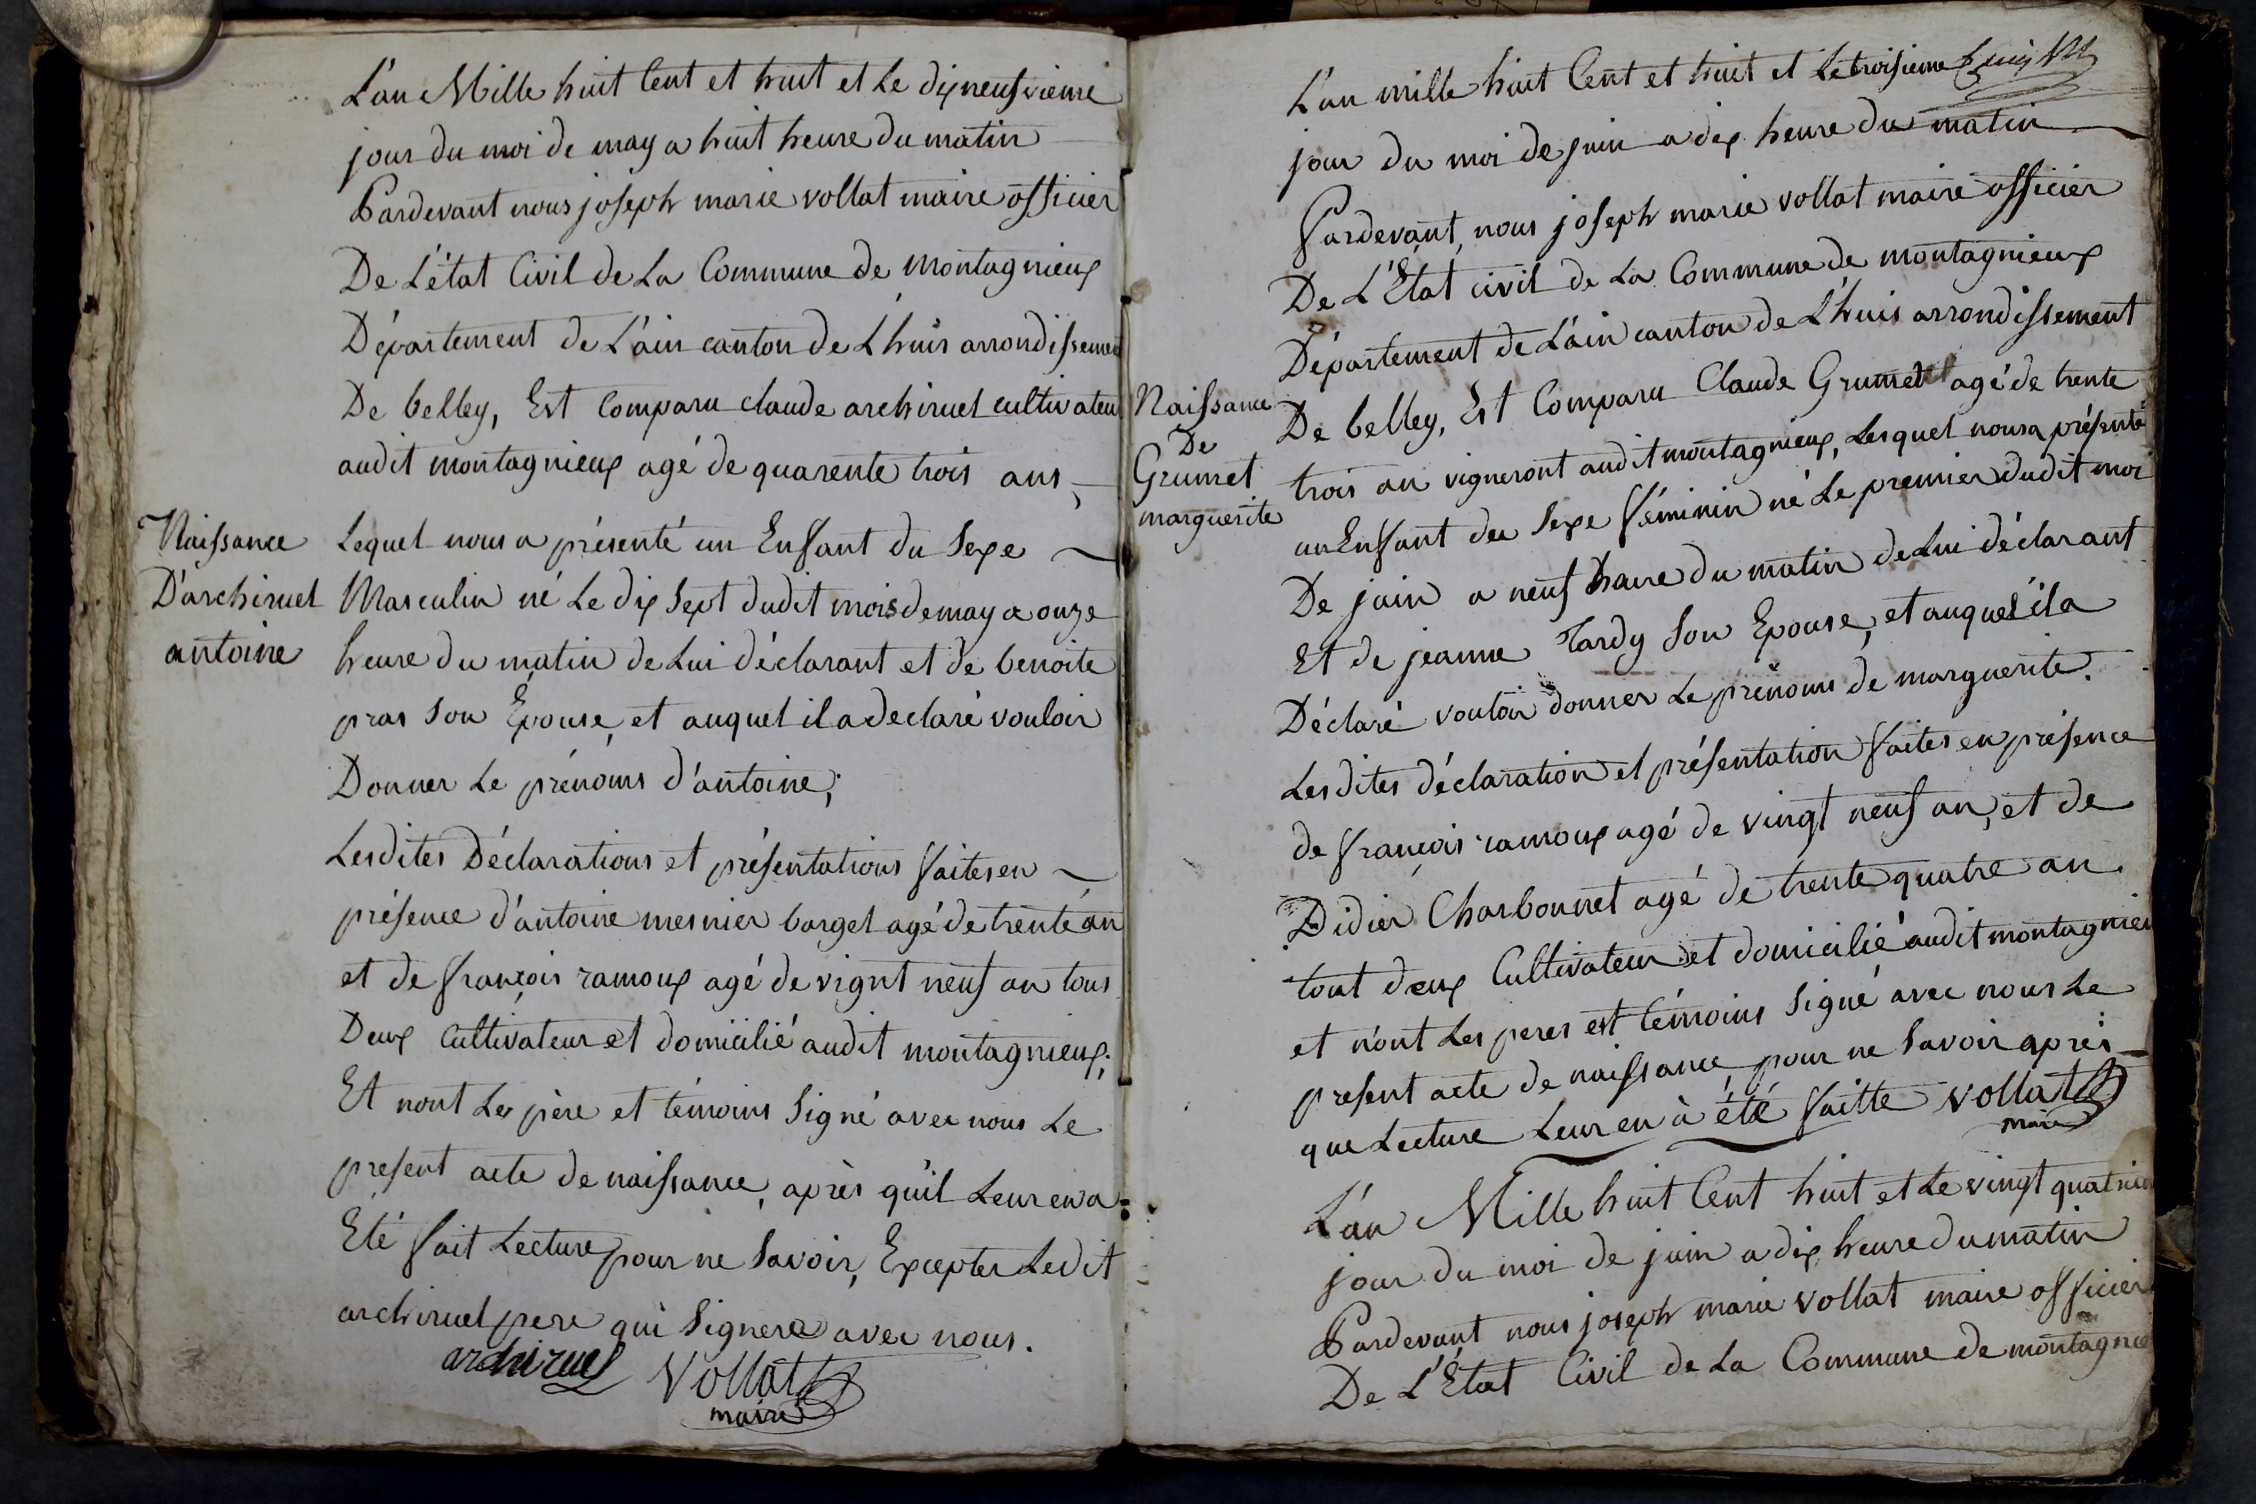 L'an Mille huit Cent et huit et Le dixneufvieme
jour du moi de may a huit heure du matin
Pardevant nous joseph marie vollat maire officier
De L'état Civil de La Commune de montagnieux
Département de L'ain canton de L'huis arrondissement
De belley, Est Comparu claude archiruel cultivateur
audit montagnieux agé de quarente trois ans,
Naissance
D'archiruel
antoine
Lequel nous a présenté un Enfant du Sexe
Masculin né Le dix Sept dudit mois de may a onze
heure du matin de Lui déclarant et de benoite
pras Son Épouse, et auquel il a declaré vouloir
Donner Le prénoms d'antoine;
Lesdites Déclarations et présentations faites en
présence d'antoine mesnier barget agé de trente an
et de françois ramoux agé de vignt neuf an tous
Deux Cultivateur et domicilié audit montagnieux;
Et nont Les père et témoins Signé avec nous Le
present acte de naissance, après qu'il Leur en a
Eté fait Lecture pour ne Savoir, Excepter Ledit
archiruel pere qui Signera avec nous.
archiruel Vollat
maire
L'an mille huit Cent et huit et Le troisieme
jour du moi de juin a dix heure du matin
Pardevant, nous joseph marie vollat maire officier
De L'État civil de La Commune de montagnieux
Département de L'ain canton de L'huis arrondissement
Naissance
De
Grumet
marguerite
De belley, Est Comparu Claude Grumet agé de trente
trois an vigneront audit montagnieux, Lesquel nous a présenté
un Enfant du Sexe féminin né Le premier dudit moi
De juin a neuf heure du matin de Lui déclarant
Et de jeanne Tardy Son Epouse, et auquel il a
Déclaré vouloir donner Le prénoms de marguerite.
Lesdites déclaration et présentation faites en présence
de françois ramoux agé de vingt neuf an, et de
Didier Charbonnet agé de trente quatre an
tout deux Cultivateur et domicilié audit montagnieu
et n'ont Les peres est témoins Signé avec nous Le
present acte de naissance pour ne Savoir après
que Lecture Leur en à été faitte Vollat
maire
L'an Mille huit Cent huit et Le vingt quatrieme
jour du moi de juin a dix heure du matin
Pardevant nous joseph marie vollat maire officier
De L'État Civil de La Commune de montagnie